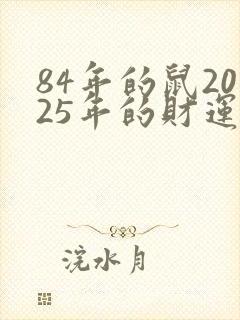 84年的鼠20
25年的財運
浣水月